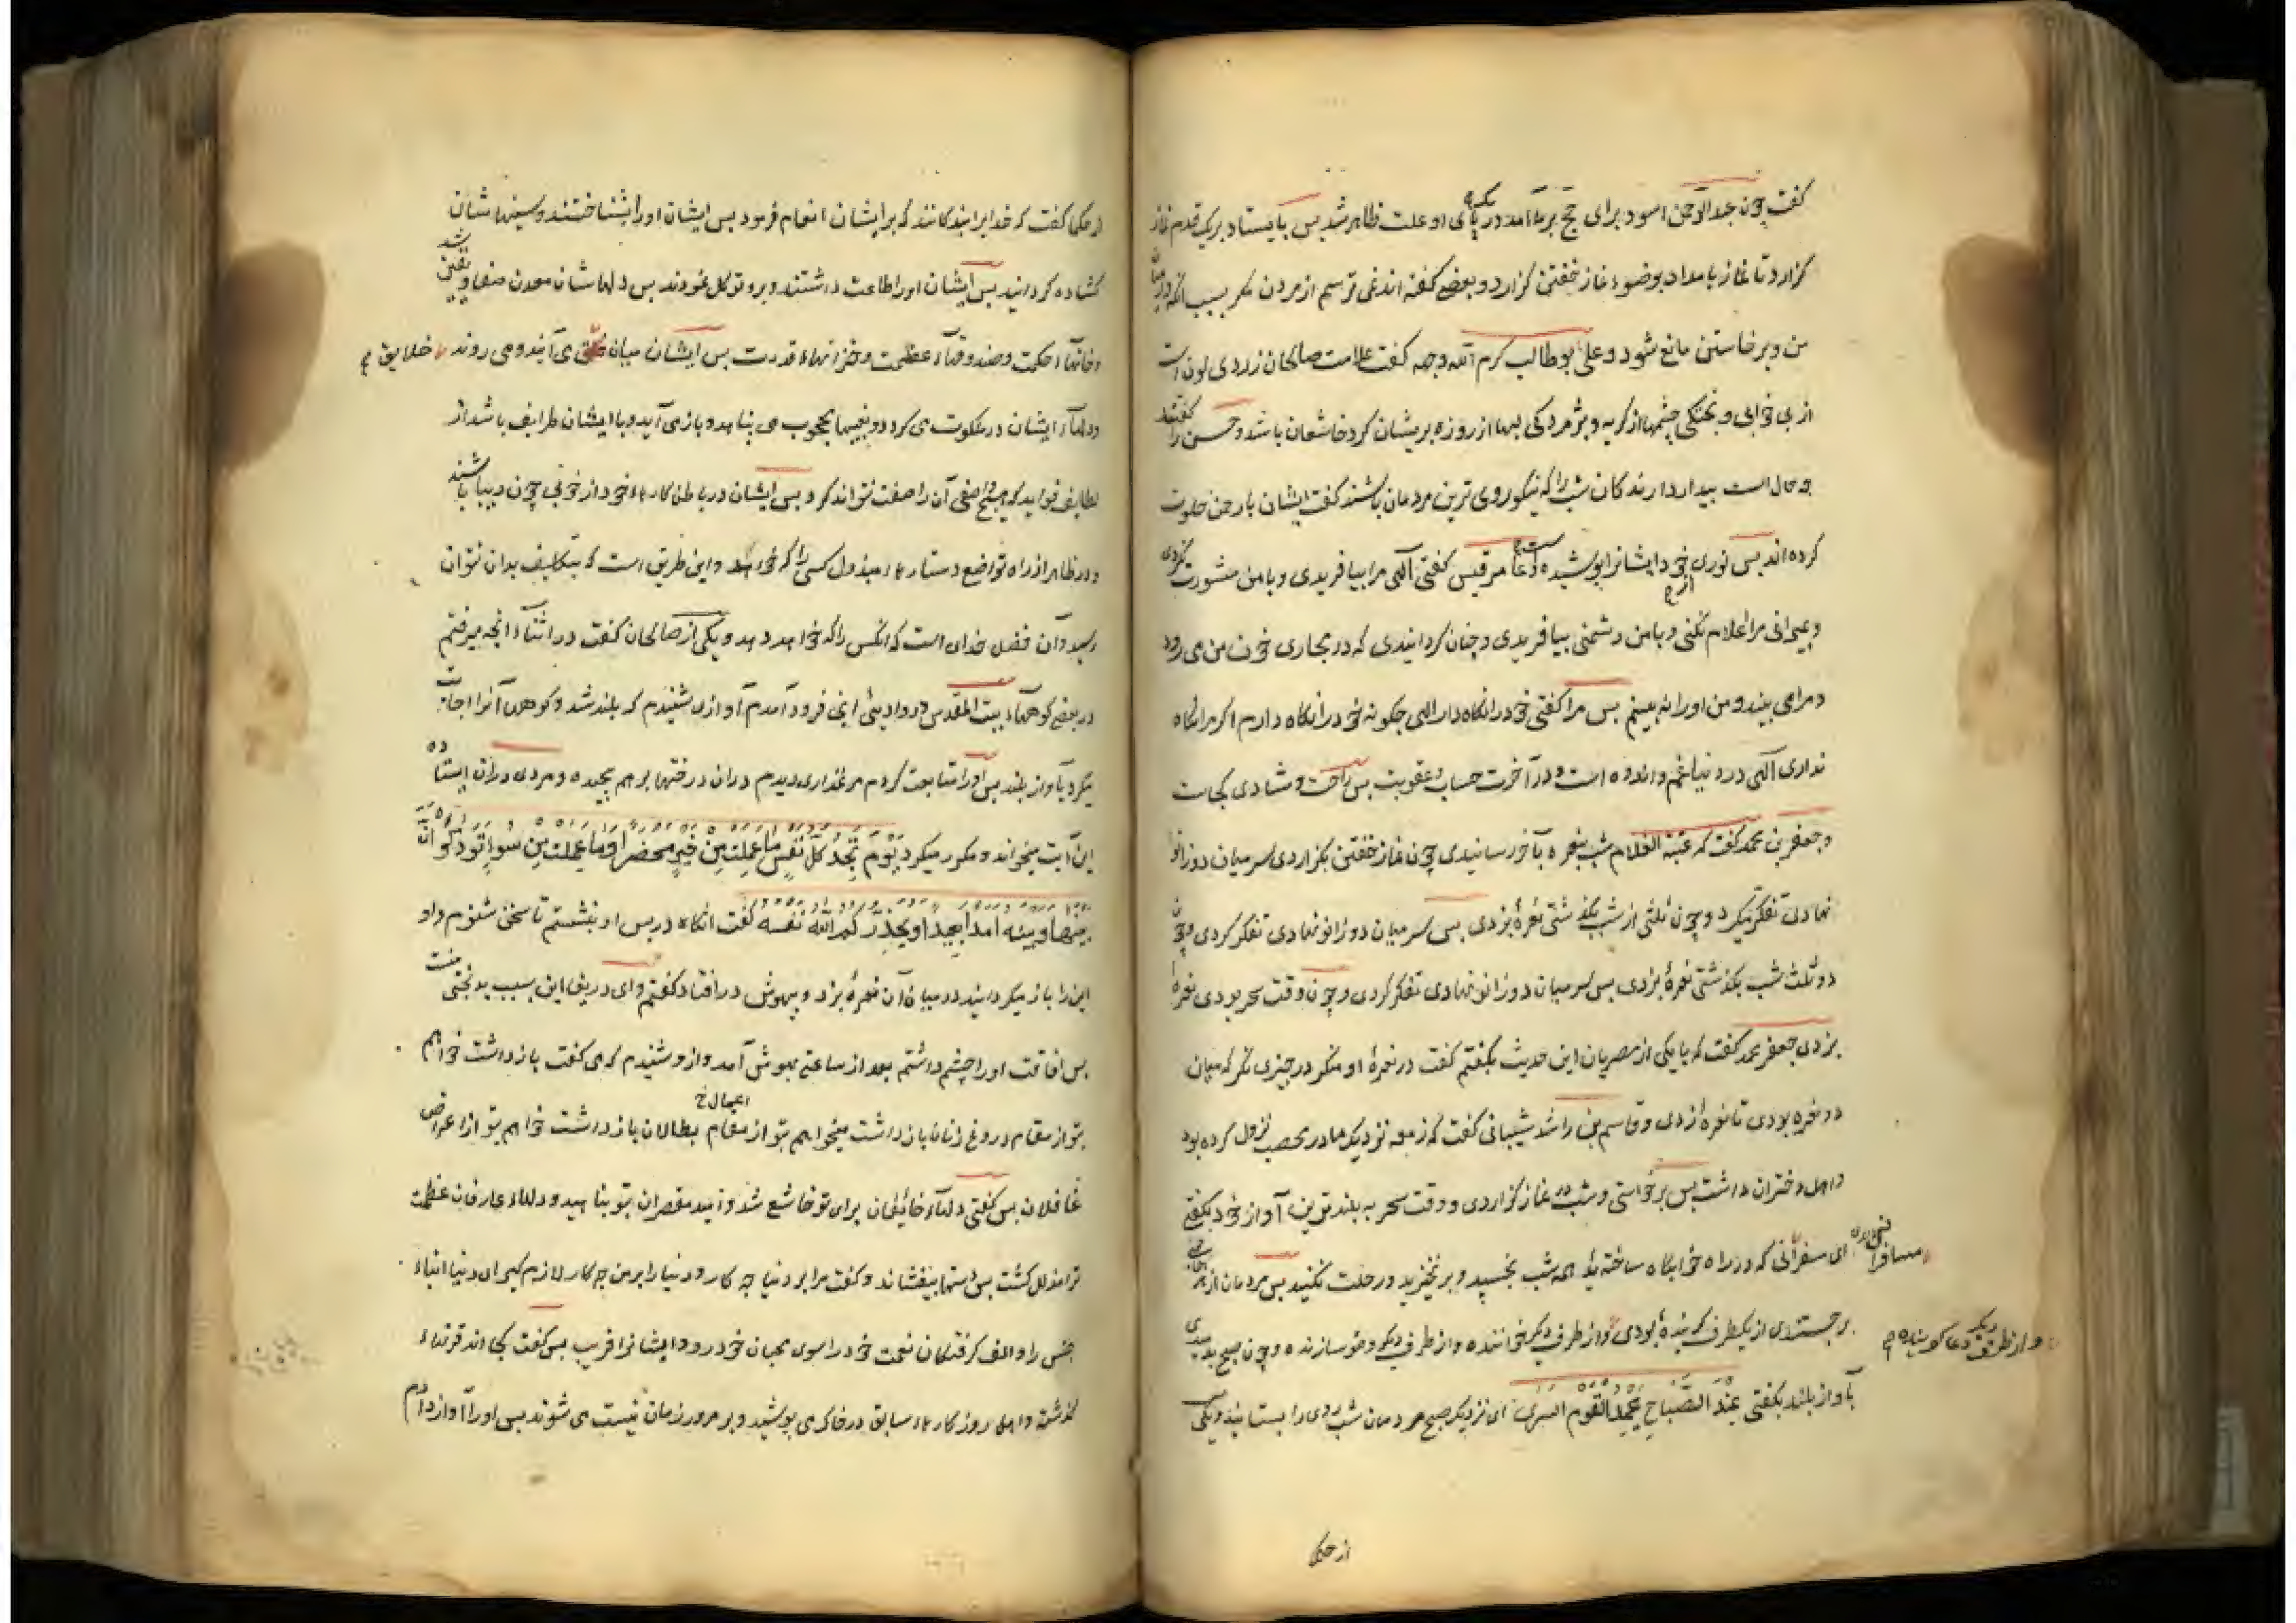 گفت چون عبد الرحمن اسود برای حج بر ما آمد در یک پای او علت ظاهر شد پس بایستاد بر یک قدم نماز
گزارد تا نماز بامداد بوضوء نماز خفتن گزارد و بعضی گفته اند نمی ترسم از مردن مگر بسبب آنکه میان
من و برخاستن مانع شود و علی بو طالب کرم الله وجهه گفت علامت صالحان زردی لون است
از بی خوابی و چشمها از گریه و پژمردگی لبها از روزه بریشان گرد خاشعان باشد و حسن را گفتند
چه حال است بیدار دارندگان شب را که نیکو روی ترین مردمان باشند گفت ایشان با رحمن خلوت
کرده اند پس نوری از خود ایشانرا پوشیده است و عامر قیس گفتی الهی مرا بیافریدی و با من مشورت نکردی
و بمیرانی مرا اعلام نکنی و با من دشمنی بیافریدی و چنان گردانیدی که در مجاری خون من می رود
و مرا می بیند و من او را نه بینم پس مرا گفتی خود را نگاه دار الهی چگونه خود را نگاه دارم اگر مرا نگاه
نداری الهی در دنیا غم و اندوه است و در آخرت حساب و عقوبت پس راحت و شادی کجاست
و جعفر بن محمد گفت که عتبة الغلام شب بنعره بآخر رسانیدی چون نماز خفتن بگزاردی سر میان دو زانو
نهادی تفکر میکرد و چون ثلثی از شب بگذشتی نعرهٔ بزدی پس سر میان دو زانو نهادی تفکر کردی و چون
دو ثلث شب بگذشتی نعرهٔ بزدی پس سر میان دو زانو نهادی تفکر کردی و چون وقت سحر بودی نعره
بزدی جعفر محمد گفت که با یکی از مصریان این حدیث بگفتم گفت در نعرهٔ او منگر در چیزی نگر که میان
دو نعره بودی تا نعرهٔ زدی و قاسم بن راشد شیبانی گفت که زمعه نزدیک ما در محصب نزول کرده بود
و اهل و دختران داشت پس برخواستی و شب در نماز گزاردی و وقت سحر به بلندترین آواز خود بگفتی
ای مسافرانی که در راه خوابگاه ساخته یٔه همه شب بخسپید و برنخیزید و رحلت نکنید پس مردمان از
مسافرا
برجستندی از یکطرف گرینده بودی و از طرف دیگر خواننده و از طرف دیگر وضو سازنده و چون صبح بدمیدی
و از طرف دیگر دعا گوینده
بآواز بلند بگفتی عِنْدَ الصَّبَاحِ یَحْمَدُ الْقَوْمُ السُّرٰی ای نزدیک صبح مردمان شب روی را بستایند و یکی
از حکما
از حکما گفت که خدایرا بندگانند که بر ایشان انعام فرمود پس ایشان او را بشناختند و سینها شان
گشاده گردانید پس ایشان او را طاعت داشتند و برو توکل نمودند پس دلها شان معدن صفا و یقین شد
و خانهاء حکمت و صندوقهاء عظمت و خزانهاء قدرت پس ایشان میان خلق می آیند و می روند خلایق
و دلهاء ایشان در ملکوت می گردد و بغیبها محجوب می پناهد و باز می آید و با ایشان طرایف باشد از
لطایف فواید که هیچ واصفی آن را صفت نتواند کرد پس ایشان در باطن کارهاء خود از خوبی چون دیبا باشند
و در ظاهر از راه تواضع دستارهاء مبذول کسی را که خواهد و این طریق است که بتکلیف بدان نتوان
رسید و آن فضل خدای است که آنکس را که خواهد دهد و یکی از صالحان گفت در اثناء آنچه میرفتم
در بعضی کوههاء بیت المقدس در وادیئی ایی فرود آمدم آوازی شنیدم که بلند شد و کوهها آنرا اجابت
میکرد بآواز بلند پس او را متابعت کردم مرغزاری دیدم در آن درختها برهم پیچیده و مردی در آن ایستاده
این آیت میخواند و مکرر میکرد یَوْمَ تَجِدُ کُلُّ نَفْسٍ مَا عَمِلَتْ مِنْ خَیْرٍ مُحْضَرًا وَمَا عَمِلَتْ مِنْ سُوءٍ تَوَدُّ لَوْ اَنَّ
بَیْنَهَا وَبَیْنَهُ اَمَدًا بَعِیدًا وَیُحَذِّرُکُمُ اللهُ نَفْسَهُ گفت آنگاه در پس او بنشستم تا سخن شنوم و او
این را باز میگردانید در میان آن نعرهٔ بزد و بیهوش در افتاد گفتم وای دریغ این بسبب بدبختی منست
پس افاقت او را چشم داشتم بعد از ساعتی بهوش آمد و ازو شنیدم که می گفت بازداشت خواهم
بتو از مقام دروغ زنان بازداشت میخواهم بتو از مقام بطالان بازداشت خواهم بتو از اعراض
اعمال خ
غافلان پس گفتی دلهاء خائفان برای تو خاشع شد و امید مقصران بتو پناهید و دلهاء عارفان عظمت
ترا متذلل گشت پس دستها بیفشاند و گفت مرا بر دنیا چه کار و دنیا را بر من چه کار لازم گیر ای دنیا ابناء
جنس را و الف گرفتگان نعمت خود را سوی محبان خود رو و ایشانرا فریب پس گفت کجا اند قرنهاء
گذشته و اهل روزگارهاء سابق در خاک می پوشید و بر مرور زمان نیست می شوند پس او را آواز دادم